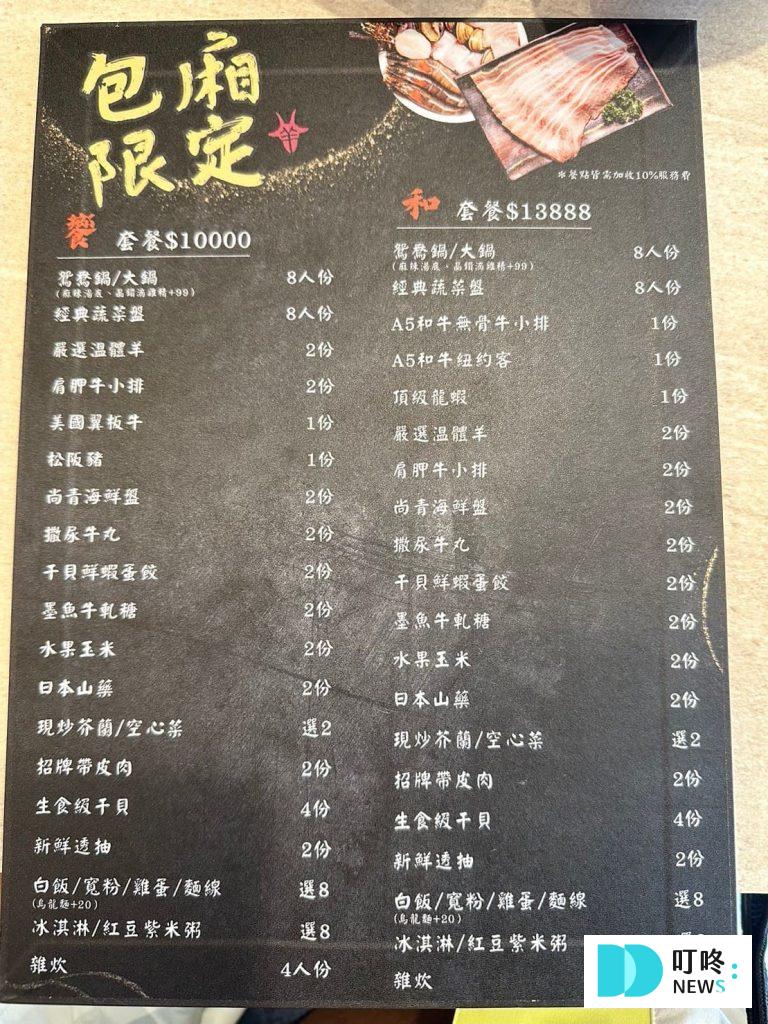 包廂
限定
羊
*餐點皆需加收10%服務費
饗 套餐$10000
鴛鴦鍋/大鍋 8人份
(麻辣湯底、晶鑽滴雞精+99)
經典蔬菜盤 8人份
嚴選溫體羊 2份
肩胛牛小排 2份
美國翼板牛 1份
松阪豬 1份
尚青海鮮盤 2份
撒尿牛丸 2份
干貝鮮蝦蛋餃 2份
墨魚牛軋糖 2份
水果玉米 2份
日本山藥 2份
現炒芥蘭/空心菜 選2
招牌帶皮肉 2份
生食級干貝 4份
新鮮透抽 2份
白飯/寬粉/雞蛋/麵線 選8
(烏龍麵+20)
冰淇淋/紅豆紫米粥 選8
雜炊 4人份
和 套餐$13888
鴛鴦鍋/大鍋 8人份
(麻辣湯底、晶鑽滴雞精+99)
經典蔬菜盤 8人份
A5和牛無骨牛小排 1份
A5和牛紐約客 1份
頂級龍蝦 1份
嚴選溫體羊 2份
肩胛牛小排 2份
尚青海鮮盤 2份
撒尿牛丸 2份
干貝鮮蝦蛋餃 2份
墨魚牛軋糖 2份
水果玉米 2份
日本山藥 2份
現炒芥蘭/空心菜 選2
招牌帶皮肉 2份
生食級干貝 4份
新鮮透抽 2份
白飯/寬粉/雞蛋/麵線 選8
(烏龍麵+20)
冰淇淋/紅豆紫米粥
雜炊
叮咚:
NEWS